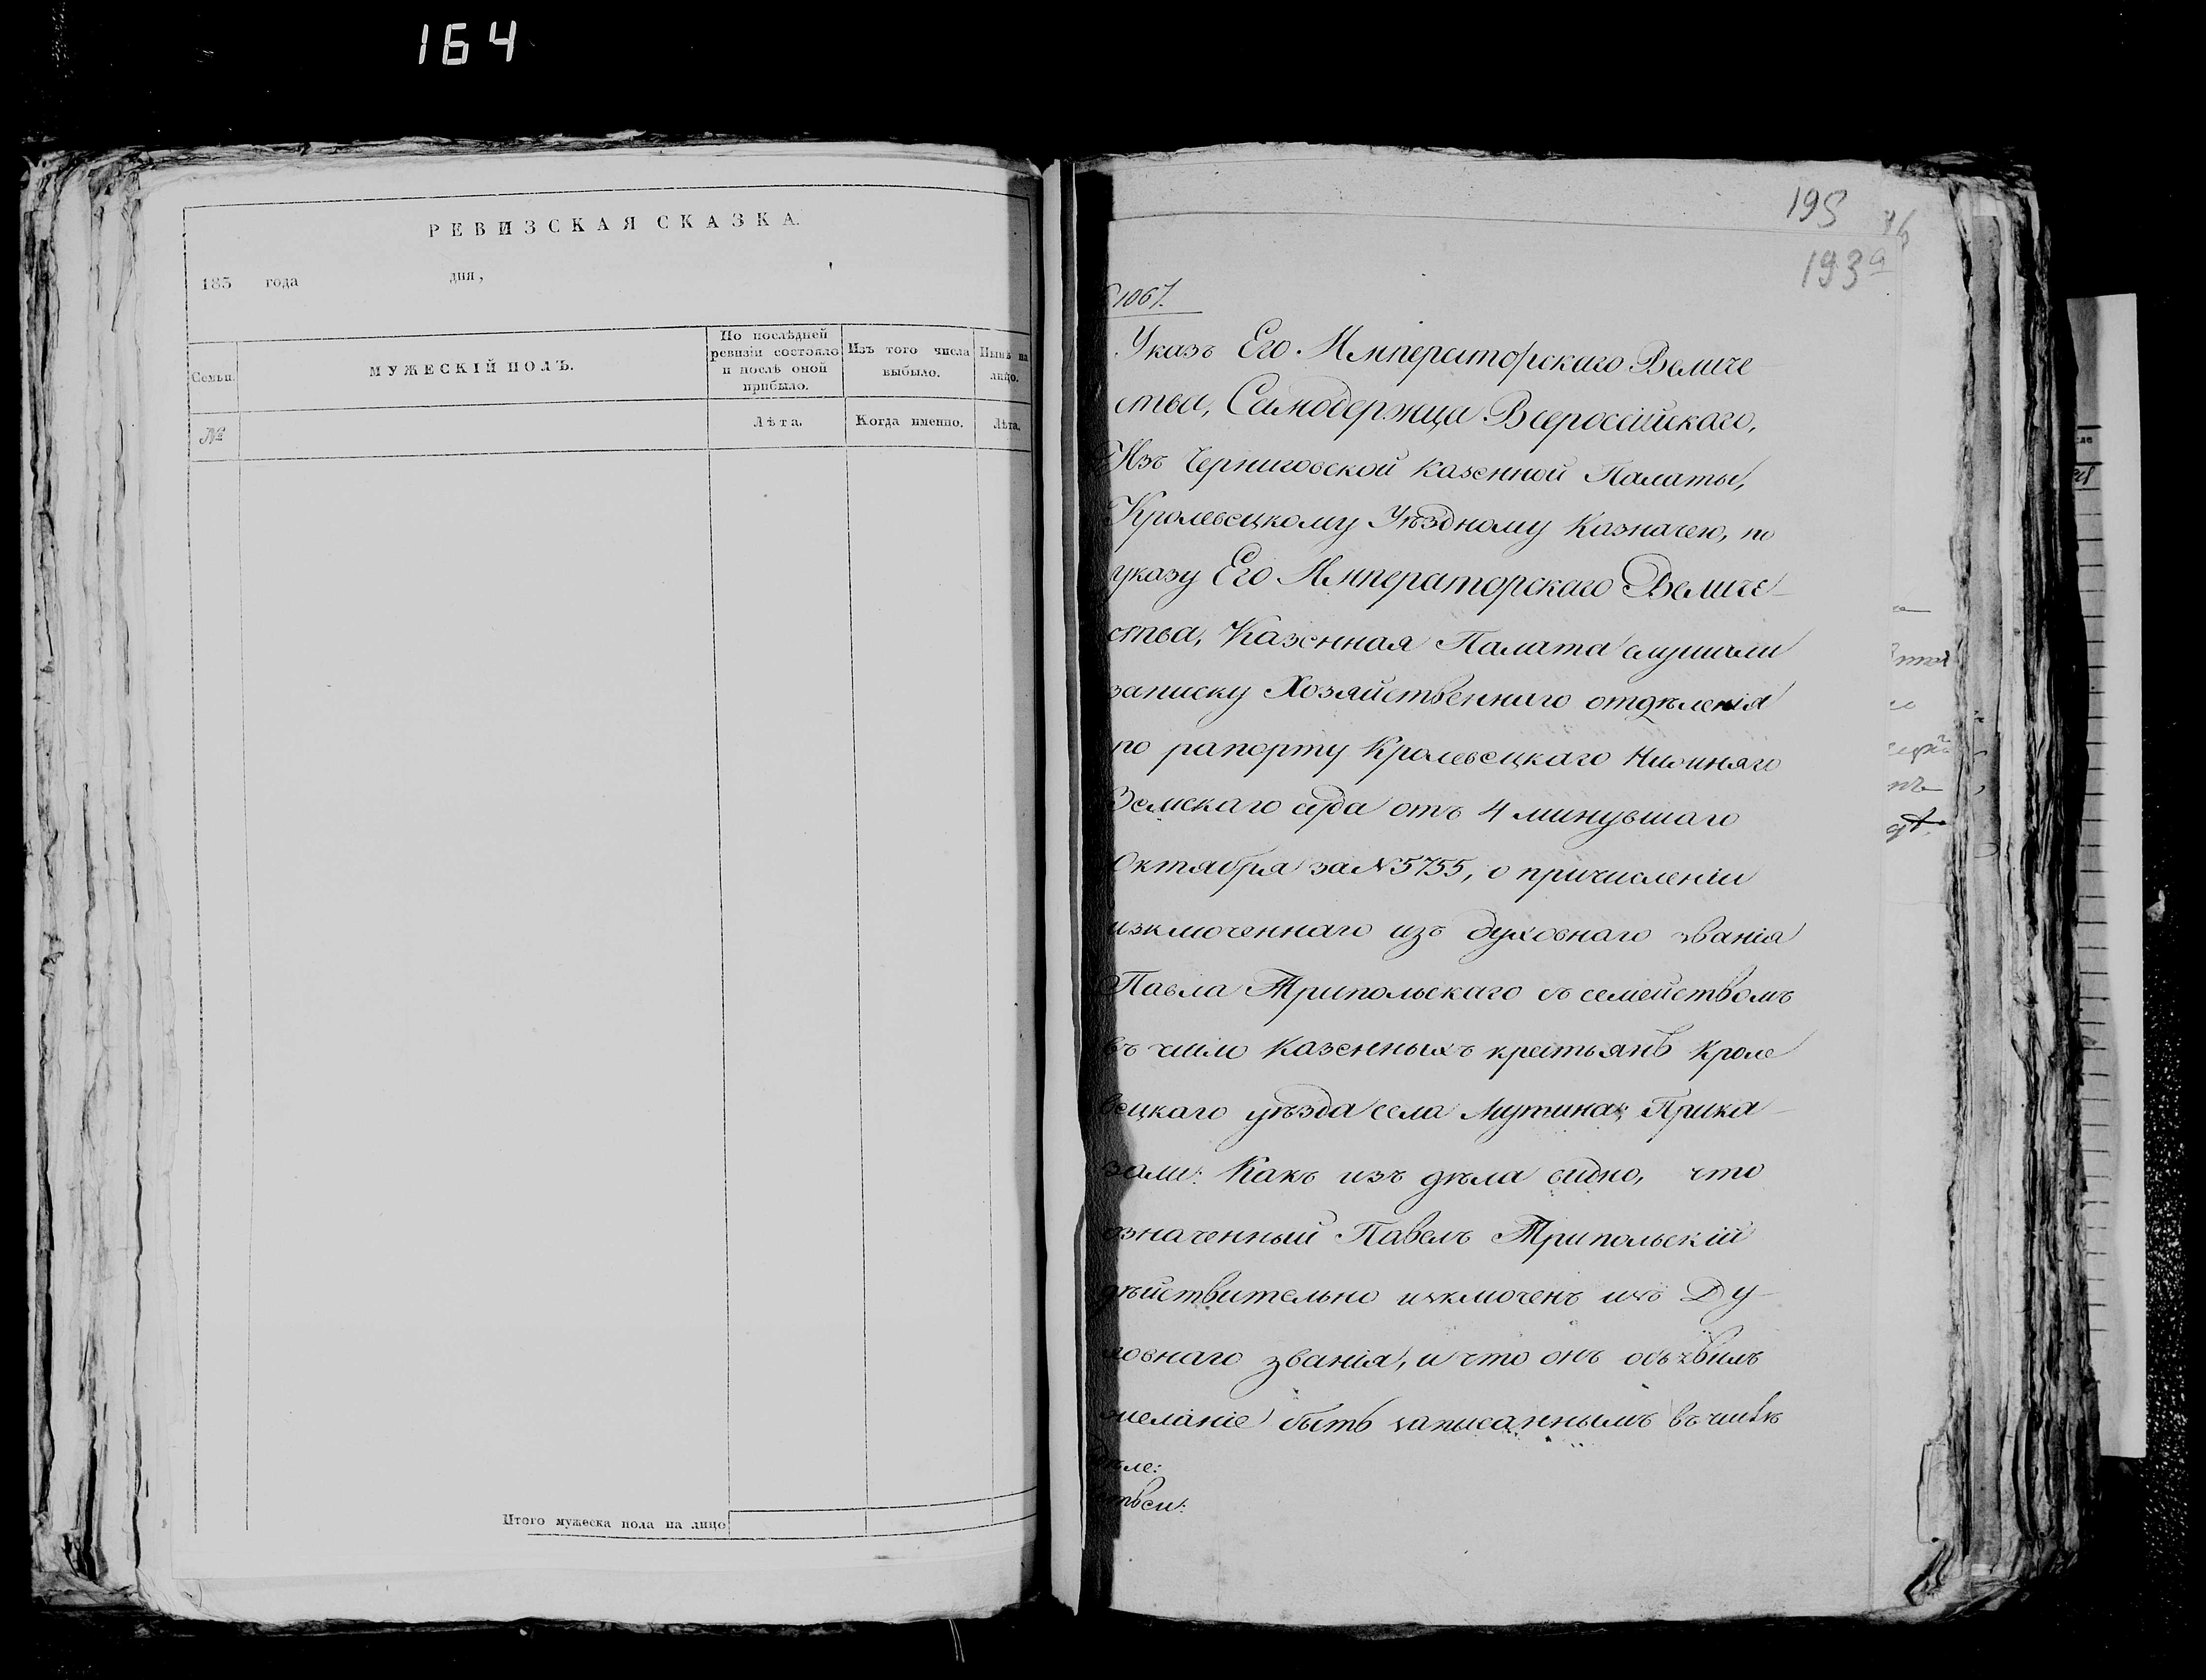 164
РЕВИЗСКАЯ СКАЗКА.
183 года дня,
Семьи.
МУЖЕСКІЙ ПОЛЪ.
По послѣдней ревизіи состояло и послѣ оной прибыло.
Изъ того числа выбыло.
Нынѣ на лицо.
№
Лѣта.
Когда именно.
Лѣта.
Итого мужеска пола на лицо
195
193а
1067.
Указъ Его Императорскаго Величе
ства, Самодержца Всероссійскаго,
Изъ Черниговской Казенной Палаты,
Кролевецкому Уѣздному Казначею, по
указу Его Императорскаго Величе-
ства, Казенная Палата слушали
записку Хозяйственнаго отдѣленія
по рапорту Кролевецкаго Нижняго
Земскаго суда отъ 4 минувшаго
Октября за №5755, о причисленіи
изключеннаго изъ духовнаго званія
Павла Трипольскаго съ семействомъ
въ число казенныхъ крестьянъ Кроле
вецкаго уѣзда села Мутина; Прика-
зали: Какъ изъ дѣла видно, что
означенный Павелъ Трипольскій
дѣйствительно изключенъ изъ Ду-
ховнаго званія, и что онъ объявилъ
желаніе быть записаннымъ въ числѣ